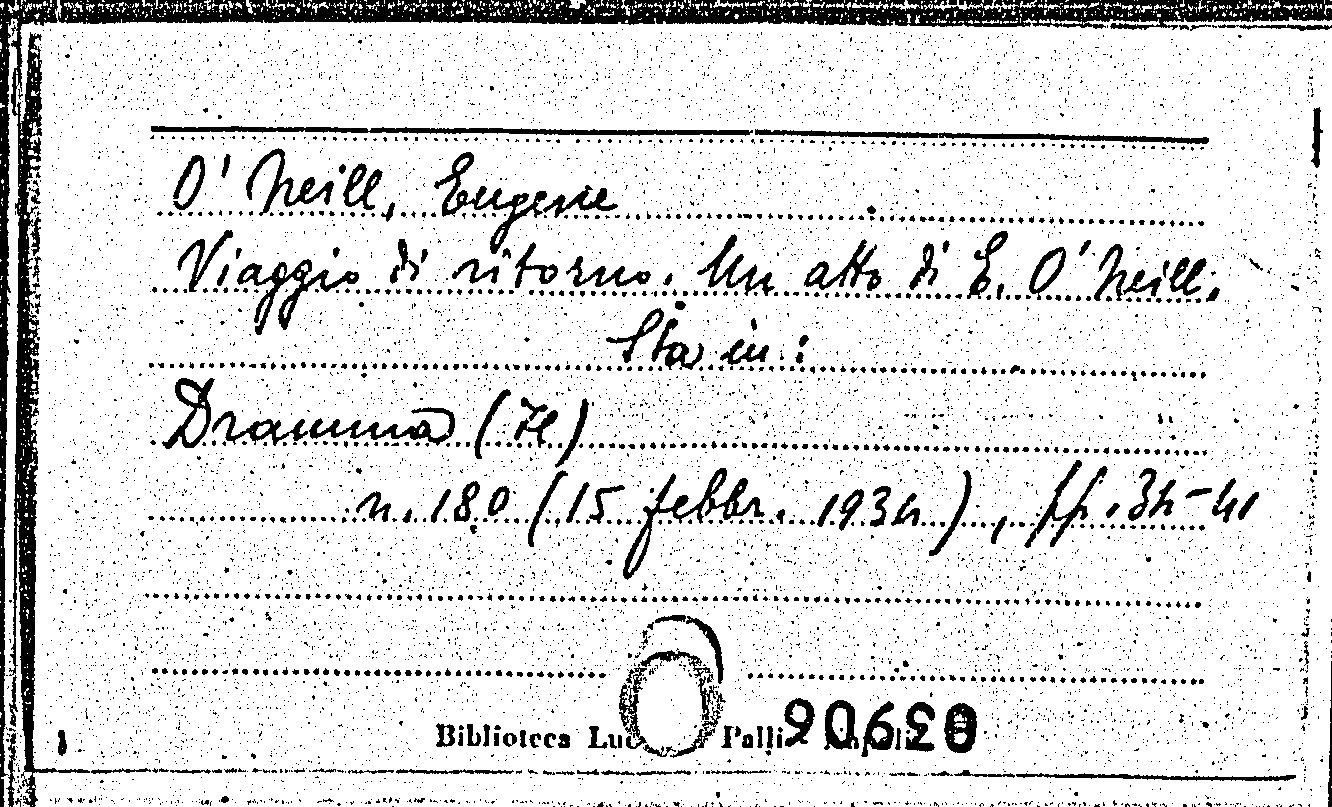 O' Neill, Eugene
Viaggio di ritorno. Un atto di E. O' Neill.
Sta in:
Dramma (Il)
n. 180 (15 febbr. 1934), pp. 34-41
Biblioteca Palli